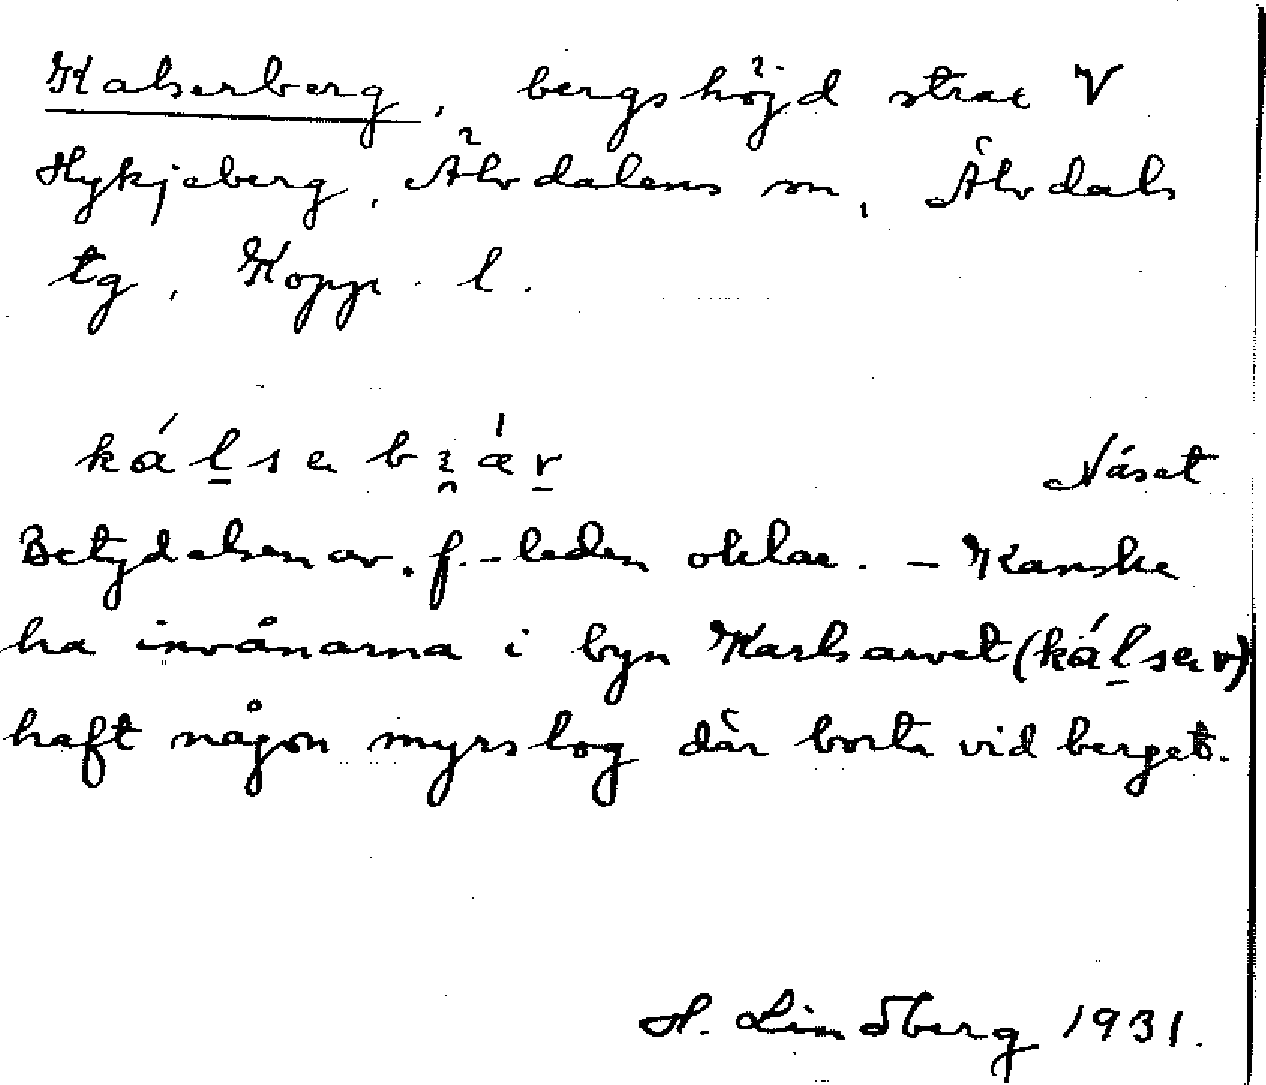 Kalserberg, bergshöjd strax V
Hykjeberg, Älvdalens sn, Älvdals
tg, Kopp. l.
kálsebɀǽr Näset
Betydelsen av f.-leden oklar. - Kanske
ha invånarna i byn Karlsarvet (kálser)
haft någon myrslog där borta vid berget.
H. Lindberg 1931.